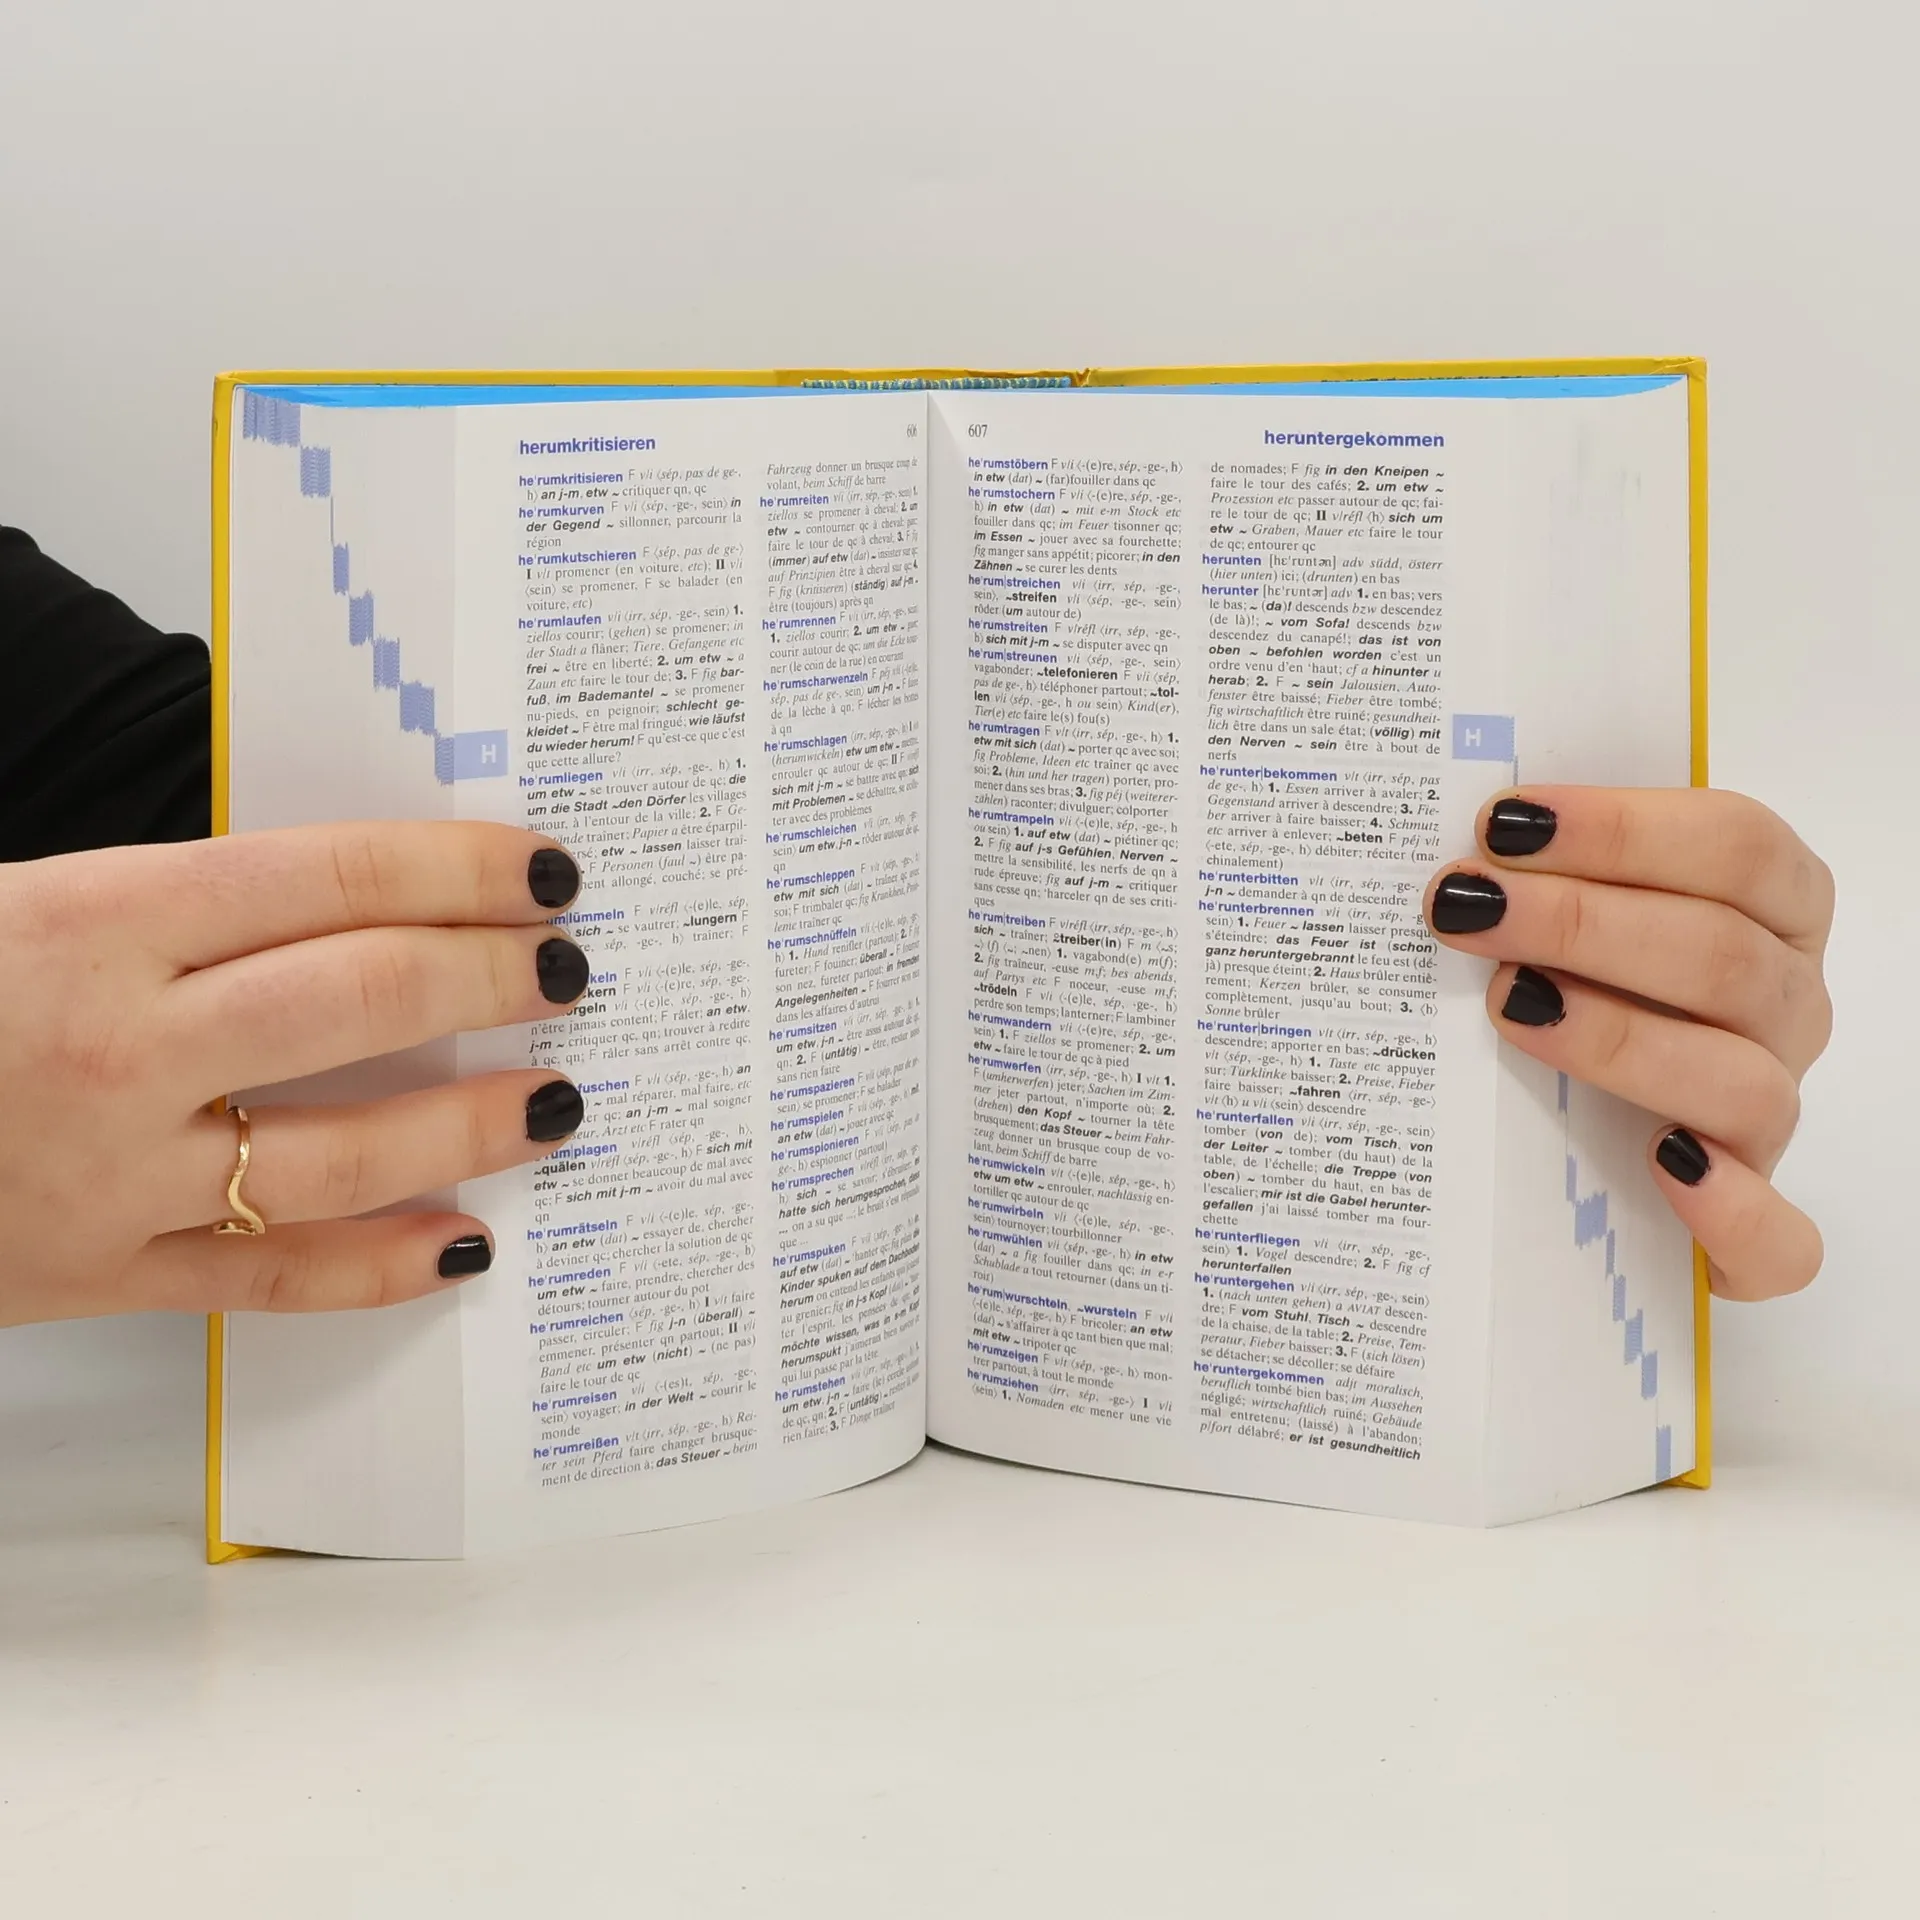 herumkritisieren
606
he'rumkritisieren F v/i ⟨sép, pas de ge-,
h⟩ an j-m, etw ~ critiquer qn, qc
he'rumkurven F v/i ⟨sép, -ge-, sein⟩ in
der Gegend ~ sillonner, parcourir la
région
he'rumkutschieren F ⟨sép, pas de ge-⟩
I v/t promener (en voiture, etc); II v/i
⟨sein⟩ se promener, F se balader (en
voiture, etc)
he'rumlaufen v/i ⟨irr, sép, -ge-, sein⟩ 1.
ziellos courir; (gehen) se promener; in
der Stadt a flâner; Tiere, Gefangene etc
frei ~ être en liberté; 2. um etw ~ a
Zaun etc faire le tour de; 3. F fig bar-
fuß, im Bademantel ~ se promener
nu-pieds, en peignoir; schlecht ge-
kleidet ~ F être mal fringué; wie läufst
du wieder herum! F qu'est-ce que c'est
que cette allure?
he'rumliegen v/i ⟨irr, sép, -ge-, h⟩ 1.
um etw ~ se trouver autour de qc; die
um die Stadt ~den Dörfer les villages
autour, à l'entour de la ville; 2. F Ge-
traîner; Papier a être éparpil-
etw ~ lassen laisser traî-
F Personen (faul ~) être pa-
allongé, couché; se pré-
lümmeln F v/réfl ⟨-(e)le, sép,
sich ~ se vautrer; ~lungern F
sép, -ge-, h⟩ traîner; F
keln F v/i ⟨-(e)le, sép, -ge-,
F v/i ⟨-(e)re, sép, -ge-,
v/i ⟨-(e)le, sép, -ge-, h⟩
n'être jamais content; F râler; an etw,
j-m ~ critiquer qc, qn; trouver à redire
à qc, qn; F râler sans arrêt contre qc,
fuschen F v/i ⟨sép, -ge-, h⟩ an
~ mal réparer, mal faire, etc
qc; an j-m ~ mal soigner
Arzt etc F rater qn
plagen v/réfl ⟨sép, -ge-, h⟩,
~quälen v/réfl ⟨sép, -ge-, h⟩ F sich mit
etw ~ se donner beaucoup de mal avec
qc; F sich mit j-m ~ avoir du mal avec
qn
he'rumrätseln F v/i ⟨-(e)le, sép, -ge-,
h⟩ an etw (dat) ~ essayer de, chercher
à deviner qc; chercher la solution de qc
he'rumreden F v/i ⟨-ete, sép, -ge-, h⟩
um etw ~ faire, prendre, chercher des
détours; tourner autour du pot
he'rumreichen ⟨sép, -ge-, h⟩ I v/t faire
passer, circuler; F fig j-n (überall) ~
emmener, présenter qn partout; II v/i
Band etc um etw (nicht) ~ (ne pas)
faire le tour de qc
he'rumreisen v/i ⟨-(es)t, sép, -ge-,
sein⟩ voyager; in der Welt ~ courir le
monde
he'rumreißen v/t ⟨irr, sép, -ge-, h⟩ Rei-
ter sein Pferd faire changer brusque-
ment de direction à; das Steuer ~ beim
Fahrzeug donner un brusque coup de
volant, beim Schiff de barre
he'rumreiten v/i ⟨irr, sép, -ge-, sein⟩ 1.
ziellos se promener à cheval; 2. um
etw ~ contourner qc à cheval;
faire le tour de qc à cheval; 3. F fig
(immer) auf etw (dat) ~ insister sur qc;
auf Prinzipien être à cheval sur qc; 4.
F fig (kritisieren) (ständig) auf j-m ~
être (toujours) après qn
he'rumrennen F v/i ⟨irr, sép, -ge-, sein⟩
1. ziellos courir; 2. um etw ~
courir autour de qc; um die Ecke tour-
ner (le coin de la rue) en courant
he'rumscharwenzeln F péj v/i ⟨-(e)le,
sép, pas de ge-, sein⟩ um j-n ~ F faire
de la lèche à qn, F lécher les bottes
à qn
he'rumschlagen ⟨irr, sép, -ge-, h⟩ I v/t
(herumwickeln) etw um etw ~ mettre,
enrouler qc autour de qc; II F v/réfl
sich mit j-m ~ se battre avec qn; sich
mit Problemen ~ se débattre,
ter avec des problèmes
he'rumschleichen v/i ⟨irr, sép, -ge-,
sein⟩ um etw, j-n ~ rôder autour de qc,
qn
he'rumschleppen F v/t ⟨sép, -ge-, h⟩
etw mit sich (dat) ~ traîner qc avec
soi; F trimbaler qc; fig Krankheit, Prob-
leme traîner qc
he'rumschnüffeln v/i ⟨-(e)le, sép, -ge-,
h⟩ 1. Hund renifler (partout); 2. F fig
fureter; F fouiner; überall ~ F fourrer
son nez, fureter partout; in fremden
Angelegenheiten ~ F fourrer son nez
dans les affaires d'autrui
he'rumsitzen v/i ⟨irr, sép, -ge-, h⟩ 1.
um etw, j-n ~ être assis autour de qc,
qn; 2. F (untätig) ~ être, rester assis
sans rien faire
he'rumspazieren F v/i ⟨sép, pas de ge-,
sein⟩ se promener; F se balader
he'rumspielen F v/i ⟨sép, -ge-, h⟩ mit,
an etw (dat) ~ jouer avec qc
he'rumspionieren F v/i ⟨sép, pas de
ge-, h⟩ espionner (partout)
he'rumsprechen v/réfl ⟨irr, sép, -ge-,
h⟩ sich ~ se savoir; s'ébruiter; es
hatte sich herumgesprochen, dass
... on a su que ...; le bruit s'est répandu
que ...
he'rumspuken F v/i ⟨sép, -ge-, h⟩
auf etw (dat) ~ 'hanter qc; fig
Kinder spuken auf dem Dachboden
herum on entend les enfants qui jouent
au grenier; fig in j-s Kopf (dat) ~
ter l'esprit, les pensées de qn; ich
möchte wissen, was in s-m Kopf
herumspukt j'aimerais bien savoir ce
qui lui passe par la tête
he'rumstehen v/i ⟨irr, sép, -ge-, h⟩ 1.
um etw, j-n ~ faire (le) cercle autour
de qc, qn; 2. F (untätig) ~ rester là sans
rien faire; 3. F Dinge traîner
H
607
heruntergekommen
he'rumstöbern F v/i ⟨-(e)re, sép, -ge-, h⟩
in etw (dat) ~ (far)fouiller dans qc
he'rumstochern F v/i ⟨-(e)re, sép, -ge-,
h⟩ in etw (dat) ~ mit e-m Stock etc
fouiller dans qc; im Feuer tisonner qc;
im Essen ~ jouer avec sa fourchette;
fig manger sans appétit; picorer; in den
Zähnen ~ se curer les dents
he'rum|streichen v/i ⟨irr, sép, -ge-,
sein⟩, ~streifen v/i ⟨sép, -ge-, sein⟩
rôder (um autour de)
he'rumstreiten F v/réfl ⟨irr, sép, -ge-,
h⟩ sich mit j-m ~ se disputer avec qn
he'rum|streunen v/i ⟨sép, -ge-, sein⟩
vagabonder; ~telefonieren F v/i ⟨sép,
pas de ge-, h⟩ téléphoner partout; ~tol-
len v/i ⟨sép, -ge-, h ou sein⟩ Kind(er),
Tier(e) etc faire le(s) fou(s)
he'rumtragen F v/t ⟨irr, sép, -ge-, h⟩ 1.
etw mit sich (dat) ~ porter qc avec soi;
fig Probleme, Ideen etc traîner qc avec
soi; 2. (hin und her tragen) porter, pro-
mener dans ses bras; 3. fig péj (weiterer-
zählen) raconter; divulguer; colporter
he'rumtrampeln F v/i ⟨-(e)le, sép, -ge-, h
ou sein⟩ 1. auf etw (dat) ~ piétiner qc;
2. F fig auf j-s Gefühlen, Nerven ~
mettre la sensibilité, les nerfs de qn à
rude épreuve; fig auf j-m ~ critiquer
sans cesse qn; 'harceler qn de ses criti-
ques
he'rum|treiben F v/réfl ⟨irr, sép, -ge-, h⟩
sich ~ traîner; ~treiber(in) F m ⟨~s;
~⟩ (f) ⟨~; ~nen⟩ 1. vagabond(e) m(f);
2. fig traîneur, -euse m,f; bes abends,
auf Partys etc F noceur, -euse m,f;
~trödeln F v/i ⟨-(e)le, sép, -ge-, h⟩
perdre son temps; lanterner; F lambiner
he'rumwandern v/i ⟨-(e)re, sép, -ge-,
sein⟩ 1. F ziellos se promener; 2. um
etw ~ faire le tour de qc à pied
he'rumwerfen ⟨irr, sép, -ge-, h⟩ I v/t 1.
F (umherwerfen) jeter; Sachen im Zim-
mer jeter partout, n'importe où; 2.
(drehen) den Kopf ~ tourner la tête
brusquement; das Steuer ~ beim Fahr-
zeug donner un brusque coup de vo-
lant, beim Schiff de barre
he'rumwickeln v/t ⟨-(e)le, sép, -ge-, h⟩
etw um etw ~ enrouler, nachlässig en-
tortiller qc autour de qc
he'rumwirbeln v/i ⟨-(e)le, sép, -ge-,
sein⟩ tournoyer; tourbillonner
he'rumwühlen v/i ⟨sép, -ge-, h⟩ in etw
(dat) ~ a fig fouiller dans qc; in e-r
Schublade a tout retourner (dans un ti-
roir)
he'rum|wurschteln, ~wursteln F v/i
⟨-(e)le, sép, -ge-, h⟩ F bricoler; an etw
(dat) ~ s'affairer à qc tant bien que mal;
mit etw ~ tripoter qc
he'rumzeigen F v/t ⟨sép, -ge-, h⟩ mon-
trer partout, à tout le monde
he'rumziehen ⟨irr, sép, -ge-⟩ I v/i
⟨sein⟩ 1. Nomaden etc mener une vie
de nomades; F fig in den Kneipen ~
faire le tour des cafés; 2. um etw ~
Prozession etc passer autour de qc; fai-
re le tour de qc; II v/réfl ⟨h⟩ sich um
etw ~ Graben, Mauer etc faire le tour
de qc; entourer qc
herunten [hɛ'runtən] adv südd, österr
(hier unten) ici; (drunten) en bas
herunter [hɛ'runtər] adv 1. en bas; vers
le bas; ~ (da)! descends bzw descendez
(de là)!; ~ vom Sofa! descends bzw
descendez du canapé!; das ist von
oben ~ befohlen worden c'est un
ordre venu d'en 'haut; cf a hinunter u
herab; 2. F ~ sein Jalousien, Auto-
fenster être baissé; Fieber être tombé;
fig wirtschaftlich être ruiné; gesundheit-
lich être dans un sale état; (völlig) mit
den Nerven ~ sein être à bout de
nerfs
he'runter|bekommen v/t ⟨irr, sép, pas
de ge-, h⟩ 1. Essen arriver à avaler; 2.
Gegenstand arriver à descendre; 3. Fie-
ber arriver à faire baisser; 4. Schmutz
etc arriver à enlever; ~beten F péj v/t
⟨-ete, sép, -ge-, h⟩ débiter; réciter (ma-
chinalement)
he'runterbitten v/t ⟨irr, sép, -ge-,
j-n ~ demander à qn de descendre
he'runterbrennen v/i ⟨irr, sép,
sein⟩ 1. Feuer ~ lassen laisser
s'éteindre; das Feuer ist (schon)
ganz heruntergebrannt le feu est (dé-
jà) presque éteint; 2. Haus brûler entiè-
rement; Kerzen brûler, se consumer
complètement, jusqu'au bout; 3. ⟨h⟩
Sonne brûler
he'runter|bringen v/t ⟨irr, sép, -ge-, h⟩
descendre; apporter en bas; ~drücken
v/t ⟨sép, -ge-, h⟩ 1. Taste etc appuyer
sur; Türklinke baisser; 2. Preise, Fieber
faire baisser; ~fahren ⟨irr, sép, -ge-⟩
v/t ⟨h⟩ u v/i ⟨sein⟩ descendre
he'runterfallen v/i ⟨irr, sép, -ge-, sein⟩
tomber (von de); vom Tisch, von
der Leiter ~ tomber (du haut) de la
table, de l'échelle; die Treppe (von
oben) ~ tomber du haut, en bas de
l'escalier; mir ist die Gabel herunter-
gefallen j'ai laissé tomber ma four-
chette
he'runterfliegen v/i ⟨irr, sép, -ge-,
sein⟩ 1. Vogel descendre; 2. F fig cf
herunterfallen
he'runtergehen v/i ⟨irr, sép, -ge-, sein⟩
1. (nach unten gehen) a AVIAT descen-
dre; F vom Stuhl, Tisch ~ descendre
de la chaise, de la table; 2. Preise, Tem-
peratur, Fieber baisser; 3. F (sich lösen)
se détacher; se décoller; se défaire
he'runtergekommen adjt moralisch,
beruflich tombé bien bas; im Aussehen
négligé; wirtschaftlich ruiné; Gebäude
mal entretenu; (laissé) à l'abandon;
p/fort délabré; er ist gesundheitlich
H